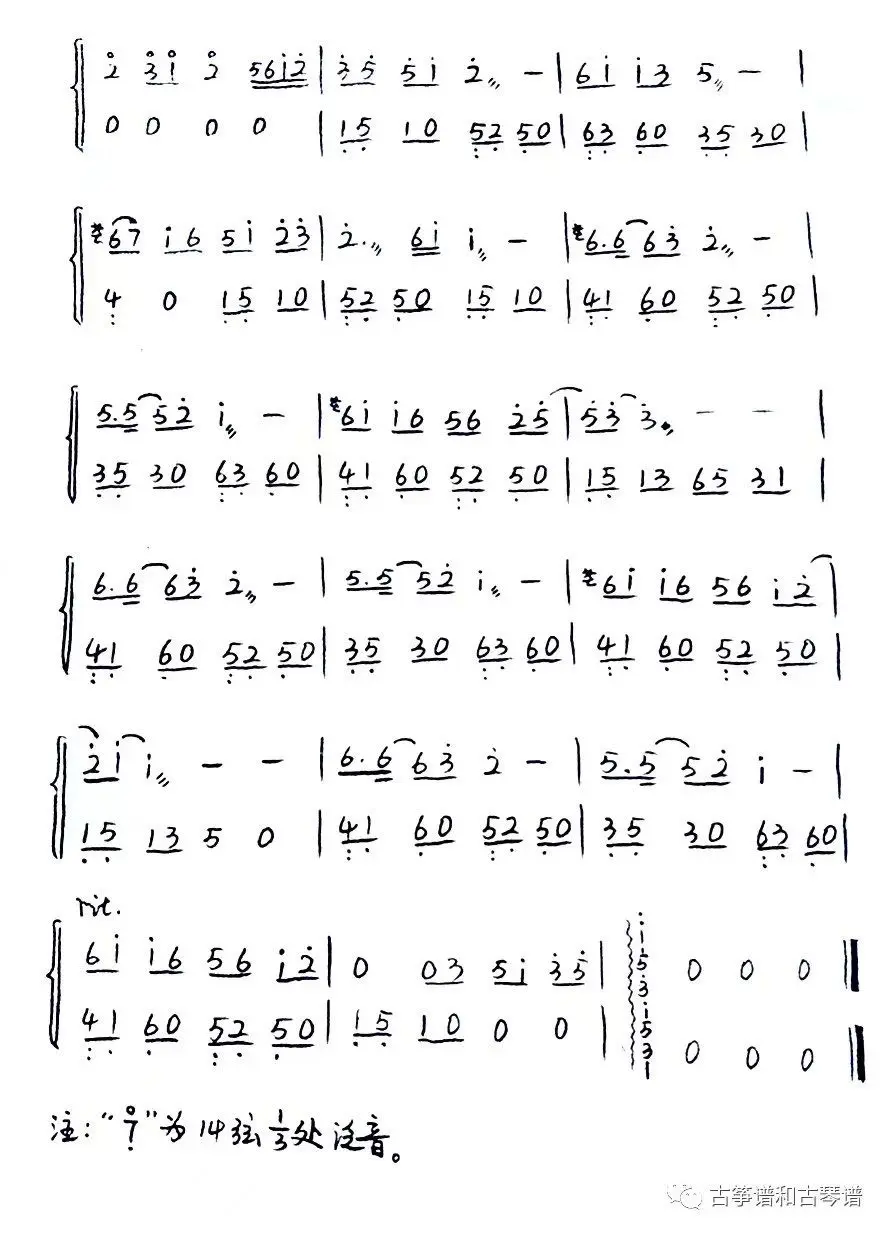 2̇ 3̇1̇ 2̇ 561̇2̇ | 3̇5̇ 5̇1̇ 2̇ - | 61̇ 1̇3 5 - |
0 0 0 0 | 15 10 52 50 | 63 60 35 30 |
67 1̇6 51̇ 2̇3̇ | 2̇· 61̇ 1̇ - | 6.6 63̇ 2̇ - |
4 0 15 10 | 52 50 15 10 | 41 60 52 50 |
5.5 52̇ 1̇ - | 61̇ 1̇6 56 2̇5̇ | 5̇3̇ 3̇. - - |
35 30 63 60 | 41 60 52 50 | 15 13 65 31 |
6.6 63̇ 2̇ - | 5.5 52̇ 1̇ - | 61̇ 1̇6 56 1̇2̇ |
41 60 52 50 | 35 30 63 60 | 41 60 52 50 |
2̇1̇ 1̇ - - | 6.6 63̇ 2̇ - | 5.5 52̇ 1̇ - |
15 13 5 0 | 41 60 52 50 | 35 30 63 60 |
rit.
61̇ 1̇6 56 1̇2̇ | 0 03 51̇ 3̇5̇ | 1̇ 5 3 0 0 0 ‖
41 60 52 50 | 15 10 0 0 | 1̇ 5 3 1 0 0 0 ‖
注：“7”为14弦1/3处泛音。
古筝谱和古琴谱